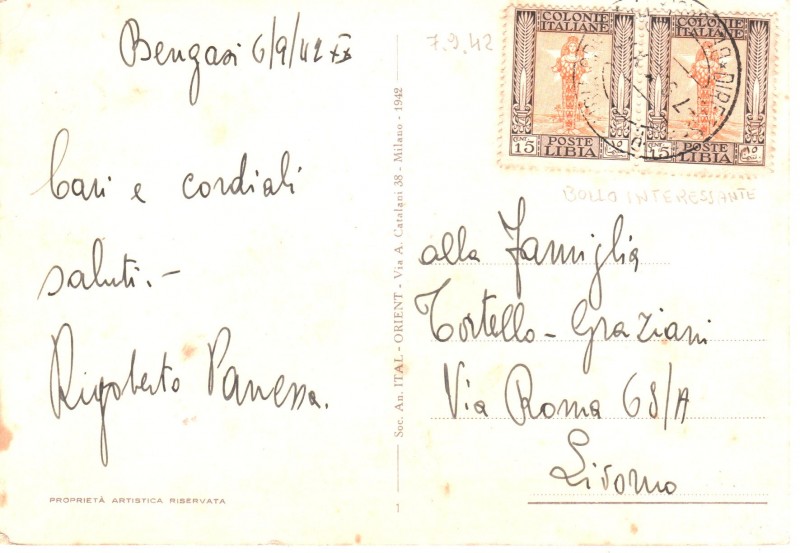 Bengasi 6/9/42 XX
Cari e cordiali
saluti.-
Rigoberto Vanessa.
PROPRIETÀ ARTISTICA RISERVATA
Soc. An. ITAL-ORIENT - Via A. Catalani 38 - Milano - 1942
1
7.9.42
COLONIE
ITALIANE
CENT. 15
POSTE
LIBIA
COLONIE
ITALIANE
CENT. 15
POSTE
LIBIA
BOLLO INTERESSANTE
alla Famiglia
Tortello-Graziani
Via Roma 68/A
Livorno